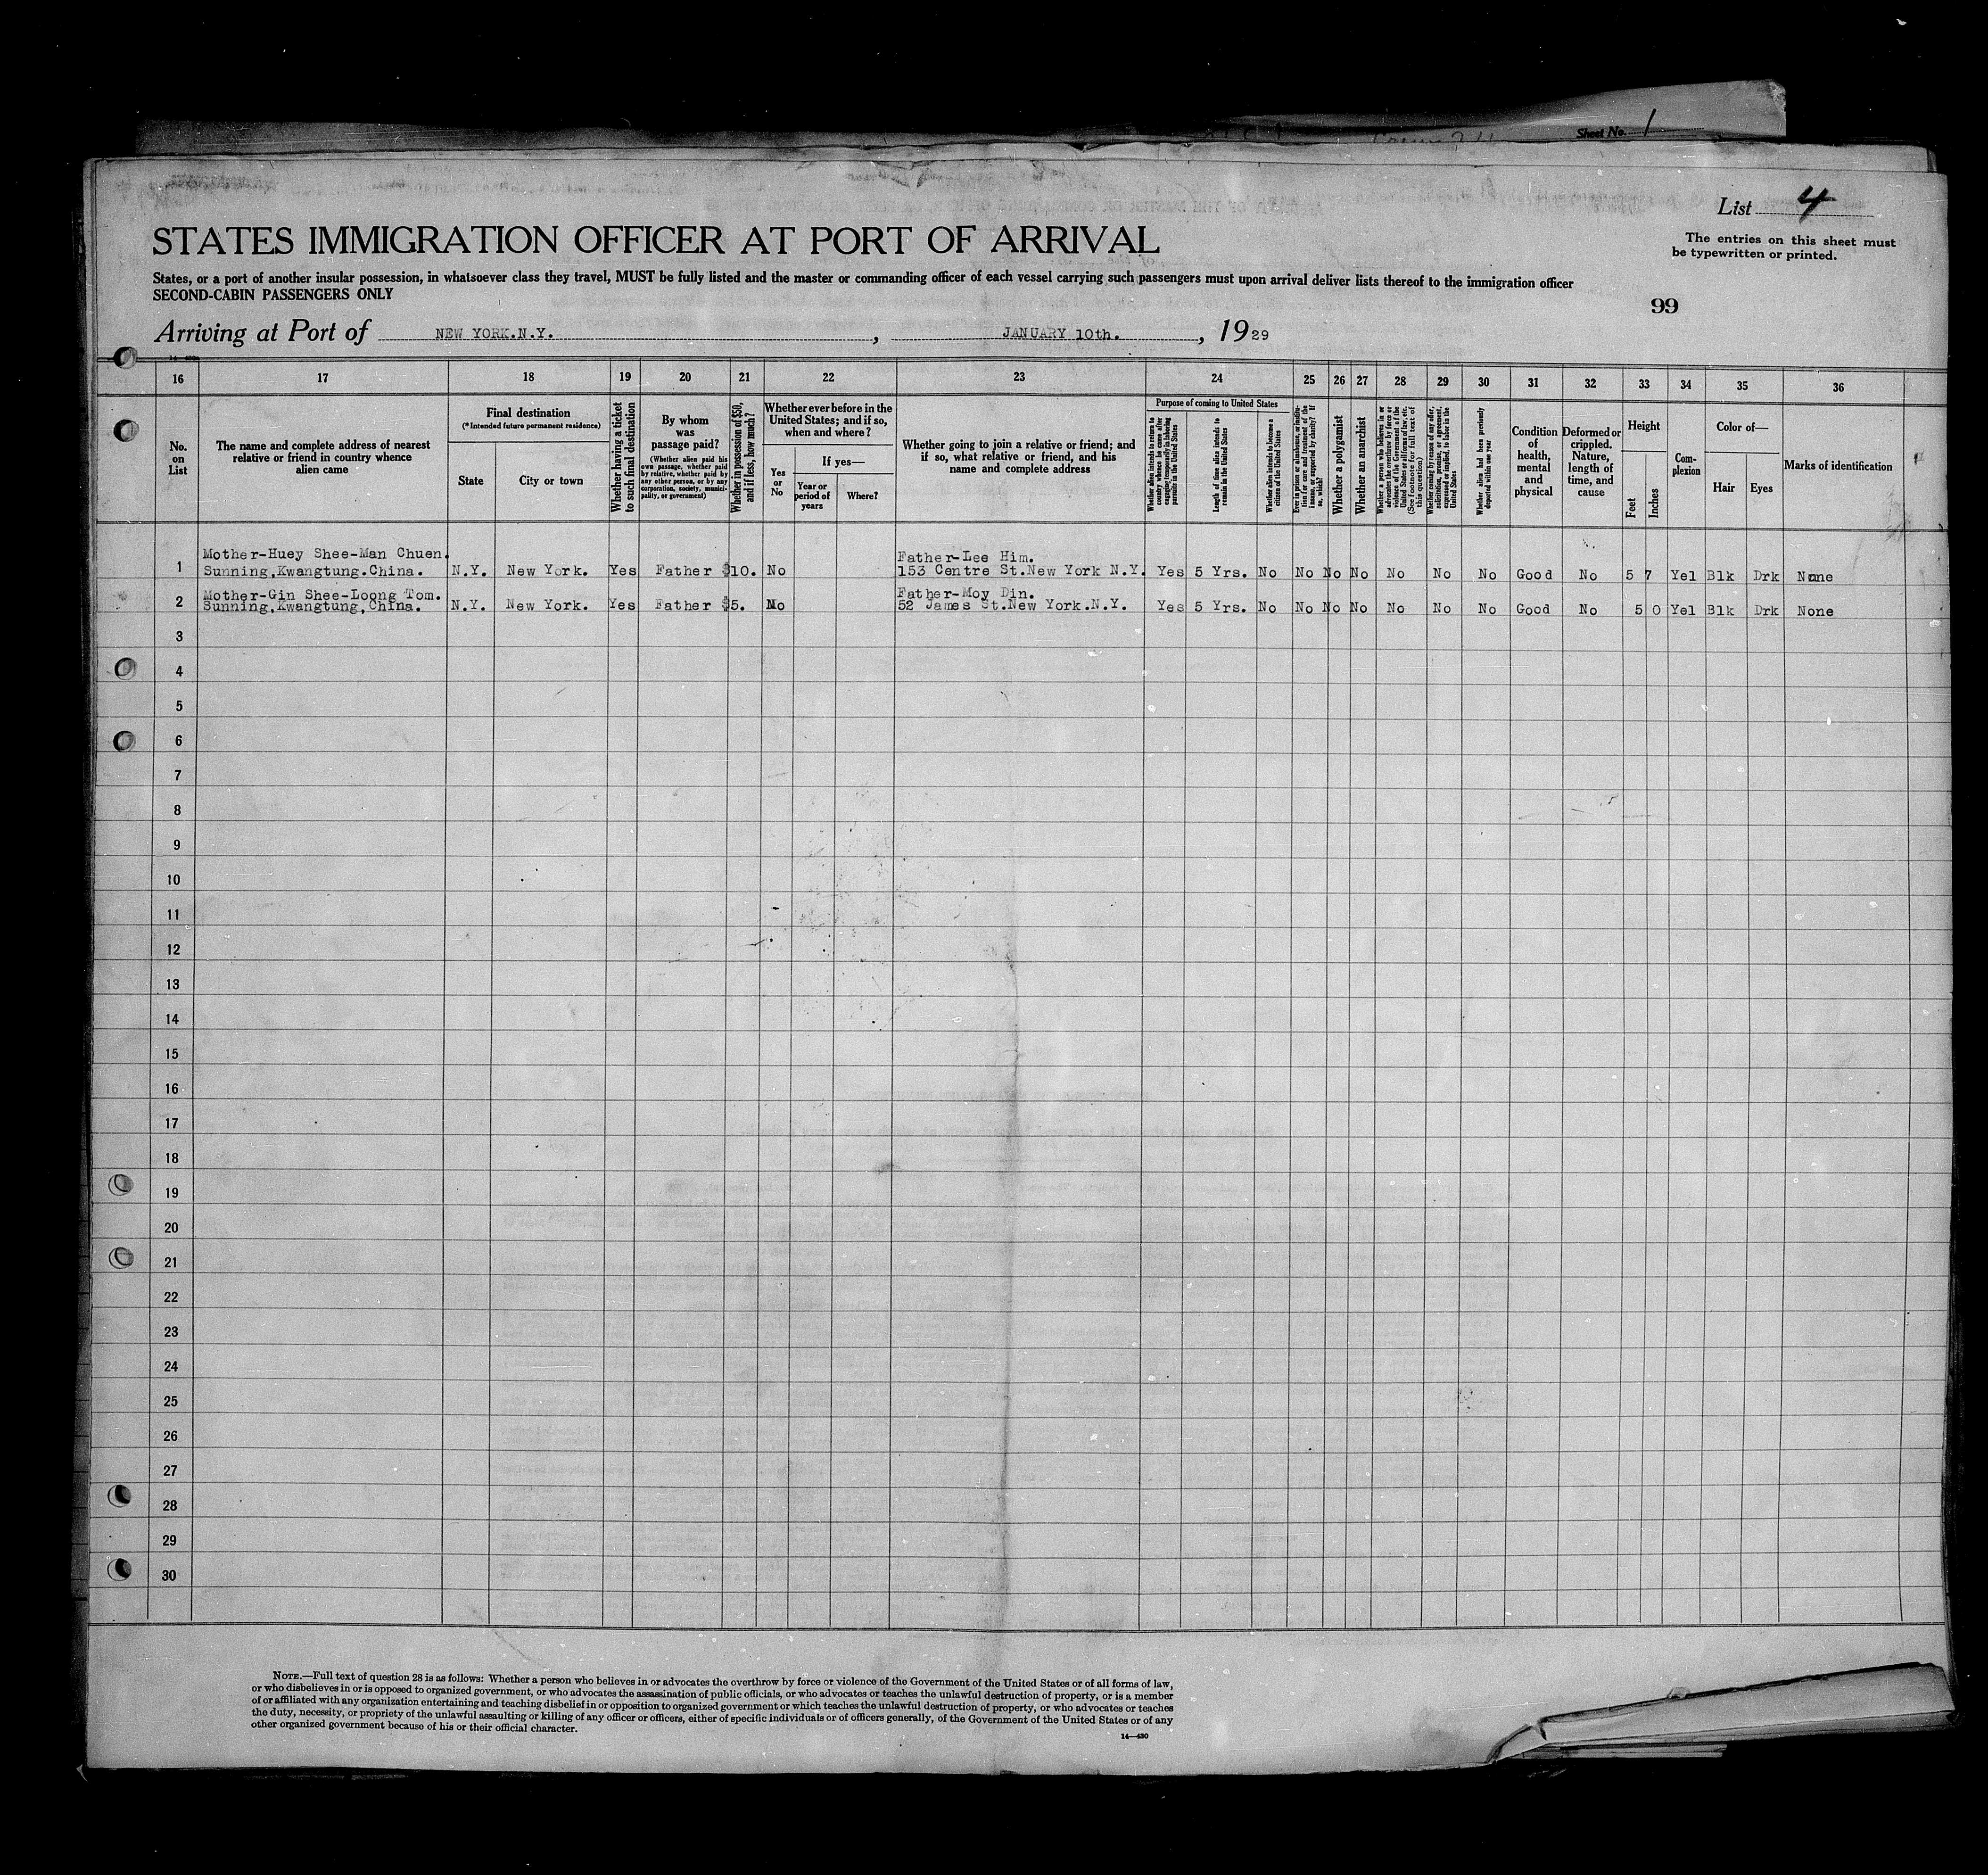 Sheet No. 1
List 4
The entries on this sheet must
be typewritten or printed.
STATES IMMIGRATION OFFICER AT PORT OF ARRIVAL
States, or a port of another insular possession, in whatsoever class they travel, MUST be fully listed and the master or commanding officer of each vessel carrying such passengers must upon arrival deliver lists thereof to the immigration officer
SECOND-CABIN PASSENGERS ONLY
99
Arriving at Port of NEW YORK.N.Y. , JANUARY 10th. , 1929
16 17 18 19 20 21 22 23 24 25 26 27 28 29 30 31 32 33 34 35 36
No.
on
List
The name and complete address of nearest
relative or friend in country whence
alien came
Final destination
(*Intended future permanent residence)
State
City or town
Whether having a ticket
to such final destination
By whom
was
passage paid?
(Whether alien paid his
own passage, whether paid
by relative, whether paid by
any other person, or by any
corporation, society, munici-
pality, or government)
Whether in possession of $50,
and if less, how much?
Whether ever before in the
United States; and if so,
when and where?
Yes
or
No
If yes—
Year or
period of
years
Where?
Whether going to join a relative or friend; and
if so, what relative or friend, and his
name and complete address
Purpose of coming to United States
Whether alien intends to return to
country whence he came after
engaging temporarily in laboring
pursuits in the United States
Length of time alien intends to
remain in the United States
Whether alien intends to become a
citizen of the United States
Ever in prison or almshouse, or institu-
tion for care and treatment of the
insane, or supported by charity? If
so, which?
Whether a polygamist
Whether an anarchist
Whether a person who believes in or
advocates the overthrow by force or
violence of the Government of the
United States or all forms of law, etc.
(See footnote for full text of
this question)
Whether coming by reason of any offer,
solicitation, promise, or agreement,
expressed or implied, to labor in the
United States
Whether alien had been previously
deported within one year
Condition
of
health,
mental
and
physical
Deformed or
crippled.
Nature,
length of
time, and
cause
Height
Feet
Inches
Com-
plexion
Color of—
Hair
Eyes
Marks of identification
Mother-Huey Shee-Man Chuen. Father-Lee Him.
1 Sunning,Kwangtung.China. N.Y. New York. Yes Father $10. No 153 Centre St.New York N.Y. Yes 5 Yrs. No No No No No No No Good No 5 7 Yel Blk Drk None
Mother-Gin Shee-Loong Tom. Father-Moy Din.
2 Sunning,Kwangtung,China. N.Y. New York. Yes Father $5. No 52 James St.New York.N.Y. Yes 5 Yrs. No No No No No No No Good No 5 0 Yel Blk Drk None
3
4
5
6
7
8
9
10
11
12
13
14
15
16
17
18
19
20
21
22
23
24
25
26
27
28
29
30
NOTE.—Full text of question 28 is as follows: Whether a person who believes in or advocates the overthrow by force or violence of the Government of the United States or of all forms of law,
or who disbelieves in or is opposed to organized government, or who advocates the assassination of public officials, or who advocates or teaches the unlawful destruction of property, or is a member
of or affiliated with any organization entertaining and teaching disbelief in or opposition to organized government or which teaches the unlawful destruction of property, or who advocates or teaches
the duty, necessity, or propriety of the unlawful assaulting or killing of any officer or officers, either of specific individuals or of officers generally, of the Government of the United States or of any
other organized government because of his or their official character.
14—430